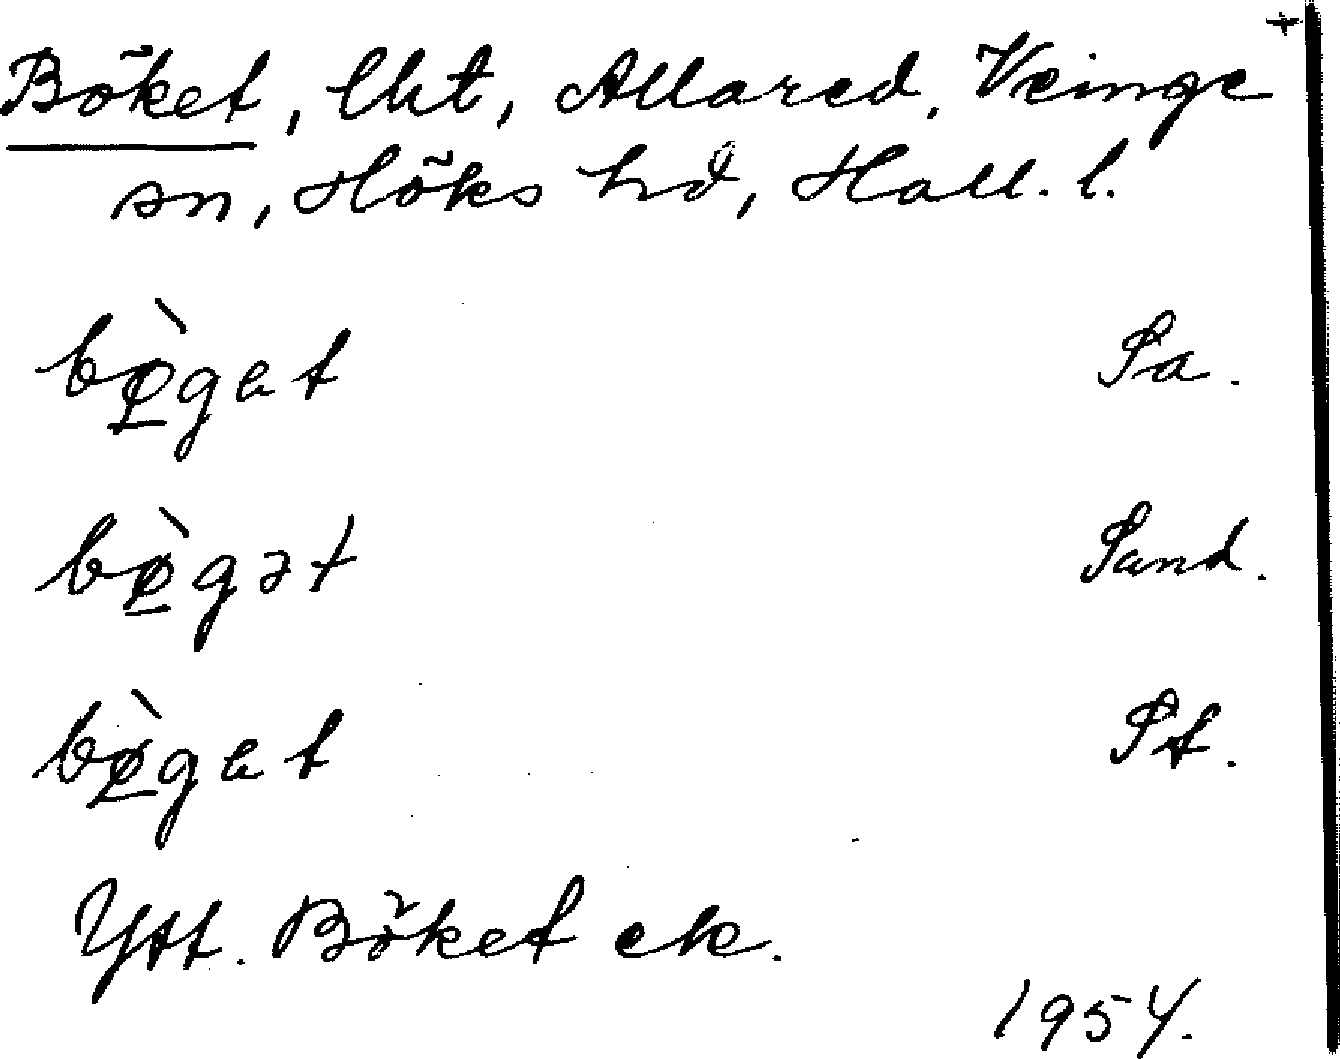 +
Böket, lht, Allared, Veinge
sn, Höks hd, Hall. l.
bø̱̀gat Sa.
bø̱̀gət Sand.
bø̱̀gat St.
Ytt. Böket ek.
1954.